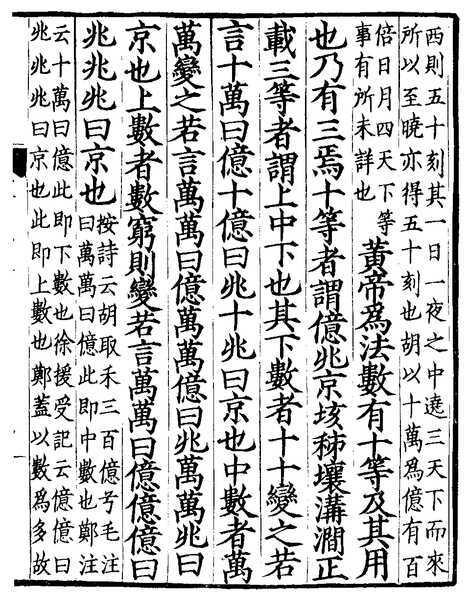 西則五十刻其一日一夜之中遶三天下而來
所以至曉亦得五十刻也胡以十萬為億有百
倍日月四天下等
事有所未詳也
黃帝為法數有十等及其用
也乃有三焉十等者謂億兆京垓秭壤溝澗正
載三等者謂上中下也其下數者十十變之若
言十萬曰億十億曰兆十兆曰京也中數者萬
萬變之若言萬萬曰億萬萬億曰兆萬萬兆曰
京也上數者數窮則變若言萬萬曰億億億曰
兆兆兆曰京也
按詩云胡取禾三百億兮毛注
曰萬萬曰億此即中數也鄭注
云十萬曰億此即下數也徐援受記云億億曰
兆兆兆曰京也此即上數也鄭蓋以數為多故